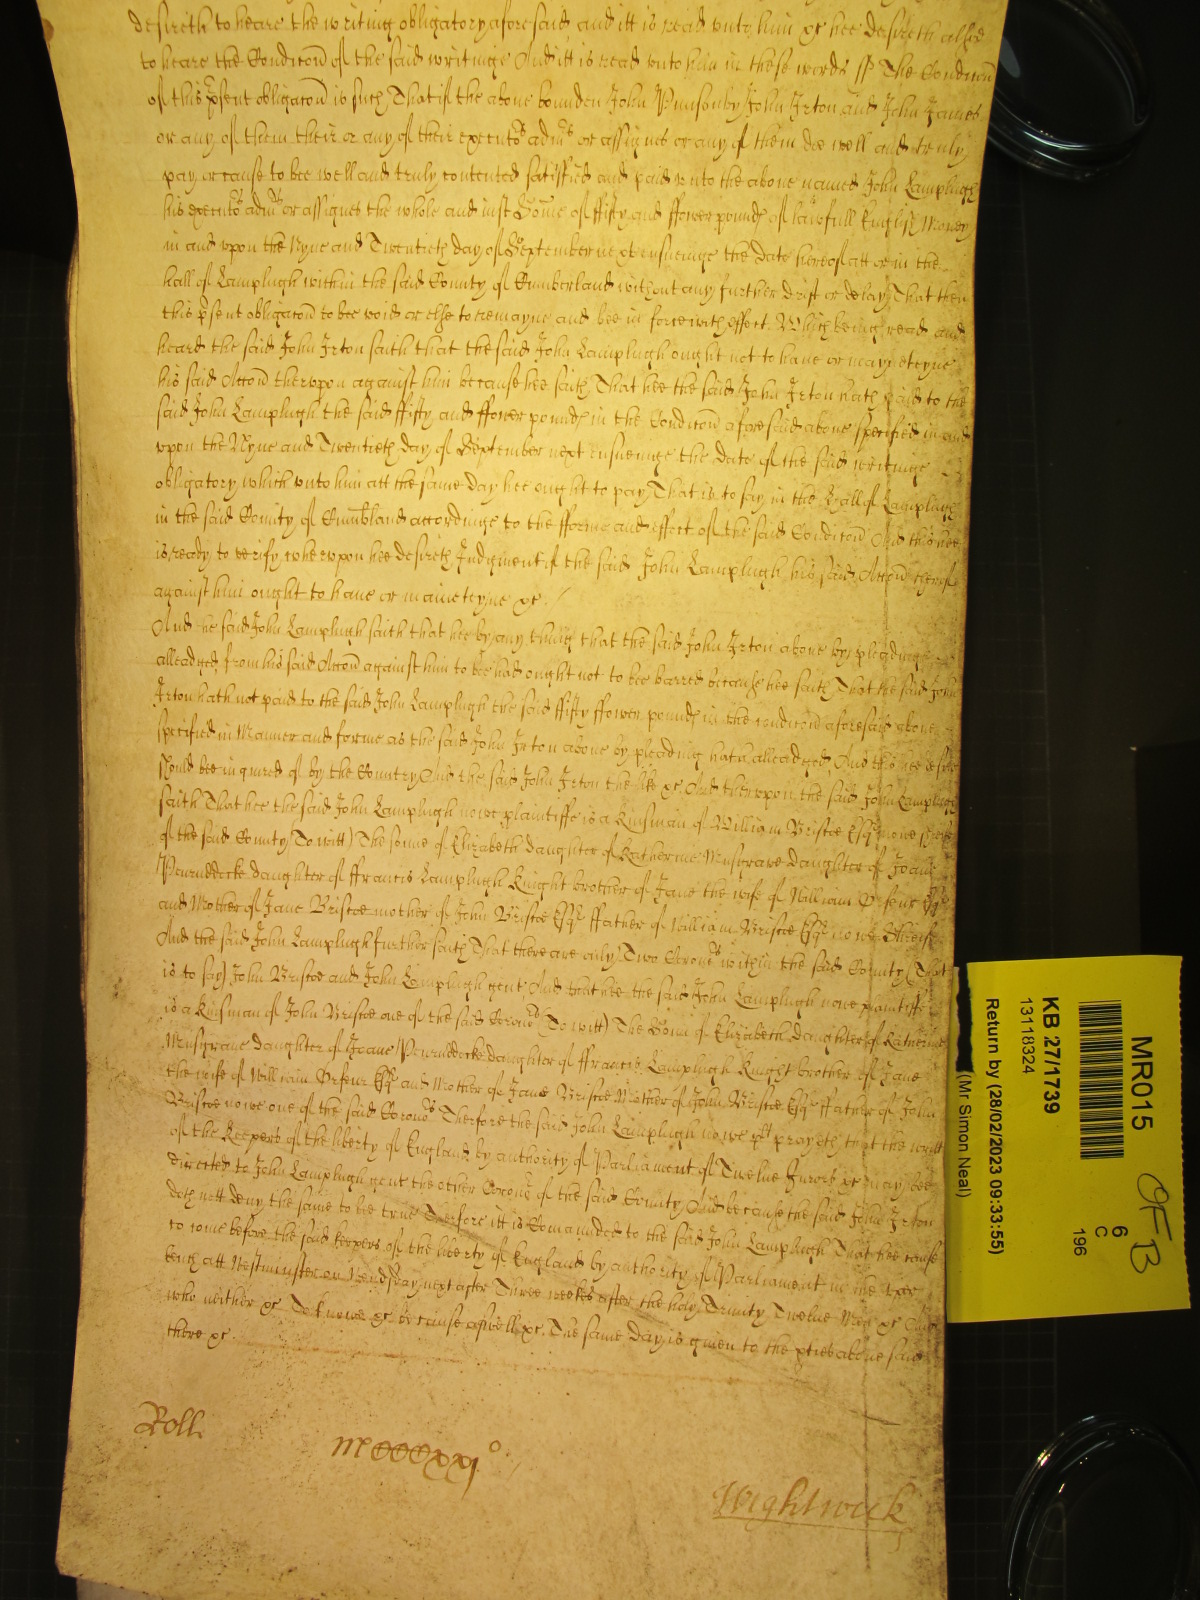 desireth to heare the writing obligatory aforesaid and itt is read unto him &c hee desireth alsoe
to heare the Condicon of the said writinge And itt is read unto him in these words ss The Condicon
of this p̱sent obligacon is such That if the above bounden John Ponsonby John Irton and John James
or any of them their or any of their executors admrs or assignes or any of them doe well and truly
pay or cause to bee well and truly contented satisfied and paid unto the above named John Lamplugh
his executors admrs or assignes the whole and iust Some of ffifty and ffower pounds of lawfull English Money
in and upon the Nyne and Twentieth day of September next ensueinge the date hereof att or in the
hall of Lamplugh within the said County of Cumberland without any further drift or delay That then
this p̱sent obligacon to bee void or else to remayne and bee in force with effect. Which being read and
heard the said John Irton saith that the said John Lamplugh ought not to have or maynteyne
his said Accon therupon against him because hee saith That hee the said John Irton hath paid to the
said John Lamplugh the said ffifty and ffower pounds in the Condicon aforesaid above specified in and
upon the Nyne and Twentieth day of September next ensueinge the date of the said writinge
obligatory which unto him att the same day hee ought to pay That is to say in the Hall of Lamplugh
in the said County of Cumbland accordinge to the fforme and effect of the said Condicon And this hee
is ready to verify wherupon hee desireth Judgment if the said John Lamplugh his said Accon thereof
against him ought to have or mainteyne &c.
And the said John Lamplugh saith that hee by any thing that the said John Irton above by pleadinge
alleadged from his said Accon against him to bee had ought not to bee barred because hee saith That the said John
Irton hath not paid to the said John Lamplugh the said ffifty ffower pounds in the condicon aforesaid above
specified in Manner and forme as the said John Irton above by pleading hath alleadged And this hee desireth
should bee inquired of by the Country And the said John Irton the like &c And therupon the said John Lamplugh
saith That hee the said John Lamplugh nowe plaintiffe is a kinsman of William Briscoe Esqr nowe Sheriffe
of the said County To witt) The sonne of Elizabeth daughter of Katherine Musgrave daughter of Joane
Pennruddocke daughter of ffrancis Lamplugh Knight brother of Jane the wife of William Orfeur Esqr
and Mother of Jane Briscoe mother of John Briscoe Esqr ffather of William Briscoe Esqr nowe Sheriffe
And the said John Lamplugh further saith That there are only Two Coroners within the said County (That
is to say) John Briscoe and John Lamplugh gent And that hee the said John Lamplugh nowe plaintiffe
is a kinsman of John Briscoe one of the said Coroners (To witt) The Sonn of Elizabeth daughter of Katherine
Musgrave daughter of Joane Pennruddocke daughter of ffrancis Lamplugh Knight brother of Jane
the wife of William Orfeur Esqr and Mother of Jane Briscoe Mother of John Briscoe Esqr ffather of John
Briscoe nowe one of the said Coroners Therfore the said John Lamplugh nowe plt prayeth that the writt
of the Keepers of the liberty of England by authority of Parliament of Twelve Jurors &c may bee
directed to John Lamplugh gent the other Coroner of the said County And because the said John Irton
doth nott deny the same to bee true Therfore itt is Comanded to the said John Lamplugh That hee cause
to come before the said keepers of the liberty of England by authority of Parliament in the vpper
bench att Westminster on Wendsday next after Three weekes after the holy Trinity Twelve Men &c And
who neither &c To knowe &c because aswell &c. The same day is given to the pties above said
there &c.
Roll.
Wightwick
MR015
KB 27/1739
13118324
Return by (28/02/2023 09:33:55)
(Mr Simon Neal)
6
C
196
OFB